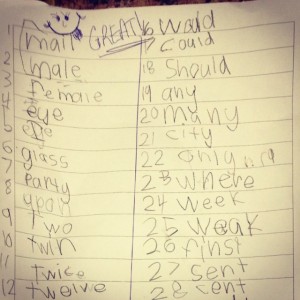 1 mail GREAT! 16
17 Could
2 male 18 Should
3 female 19 any
4 eye 20 many
5 21 city
6 glass 22 only
7 party 23 where
8 upon 24 week
9 two 25 weak
10 twin 26 first
11 twice 27 sent
12 twelve 28 cent